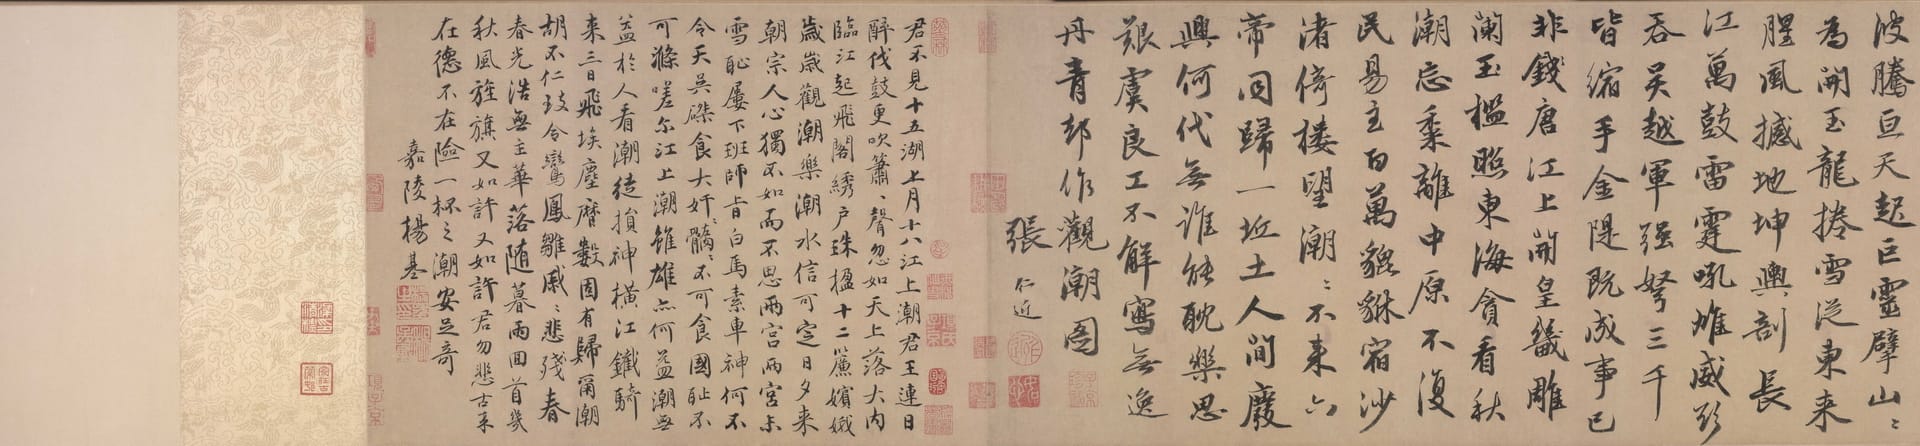 波騰亘天起巨靈擘山〻
為開玉龍捲雪從東來
腥風撼地坤輿剖長
江萬鼓雷霆吼雄威欲
吞吳越軍強弩三千
皆縮手金隄既成事已
非錢唐江上開皇畿雕
闌玉檻照東海貪看秋
潮忘黍離中原不復
民易主百萬貔貅宿沙
渚倚樓望潮〻不來六
帝同歸一坵土人間廢
興何代無誰能耽樂思
艱虞良工不解寫無逸
丹青却作觀潮圖
張仁近
君不見十五湖上月十八江上潮君王連日
醉伐鼓更吹簫〻聲忽如天上落大內
臨江起飛閣綉戶珠櫳十二簾嬪娥
歲歲觀潮樂潮水信可定日夕來
朝宗人心獨不如而不思兩宮兩宮未
雪恥屢下班師旨白馬素車神何不
令天吳磔食大奸〻髓〻不可食國恥不
可滌嗟尔江上潮雖雄亦何益潮無
益於人看潮徒損神橫江鐵騎
來三日飛埃塵曆數固有歸甬潮
胡不仁玟令鸞鳳雛戚〻悲殘春
春光浩無主華落隨暮雨回首幾
秋風旌旗又如許又如許君勿悲古來
在德不在險一杯之潮安足奇
嘉陵楊基